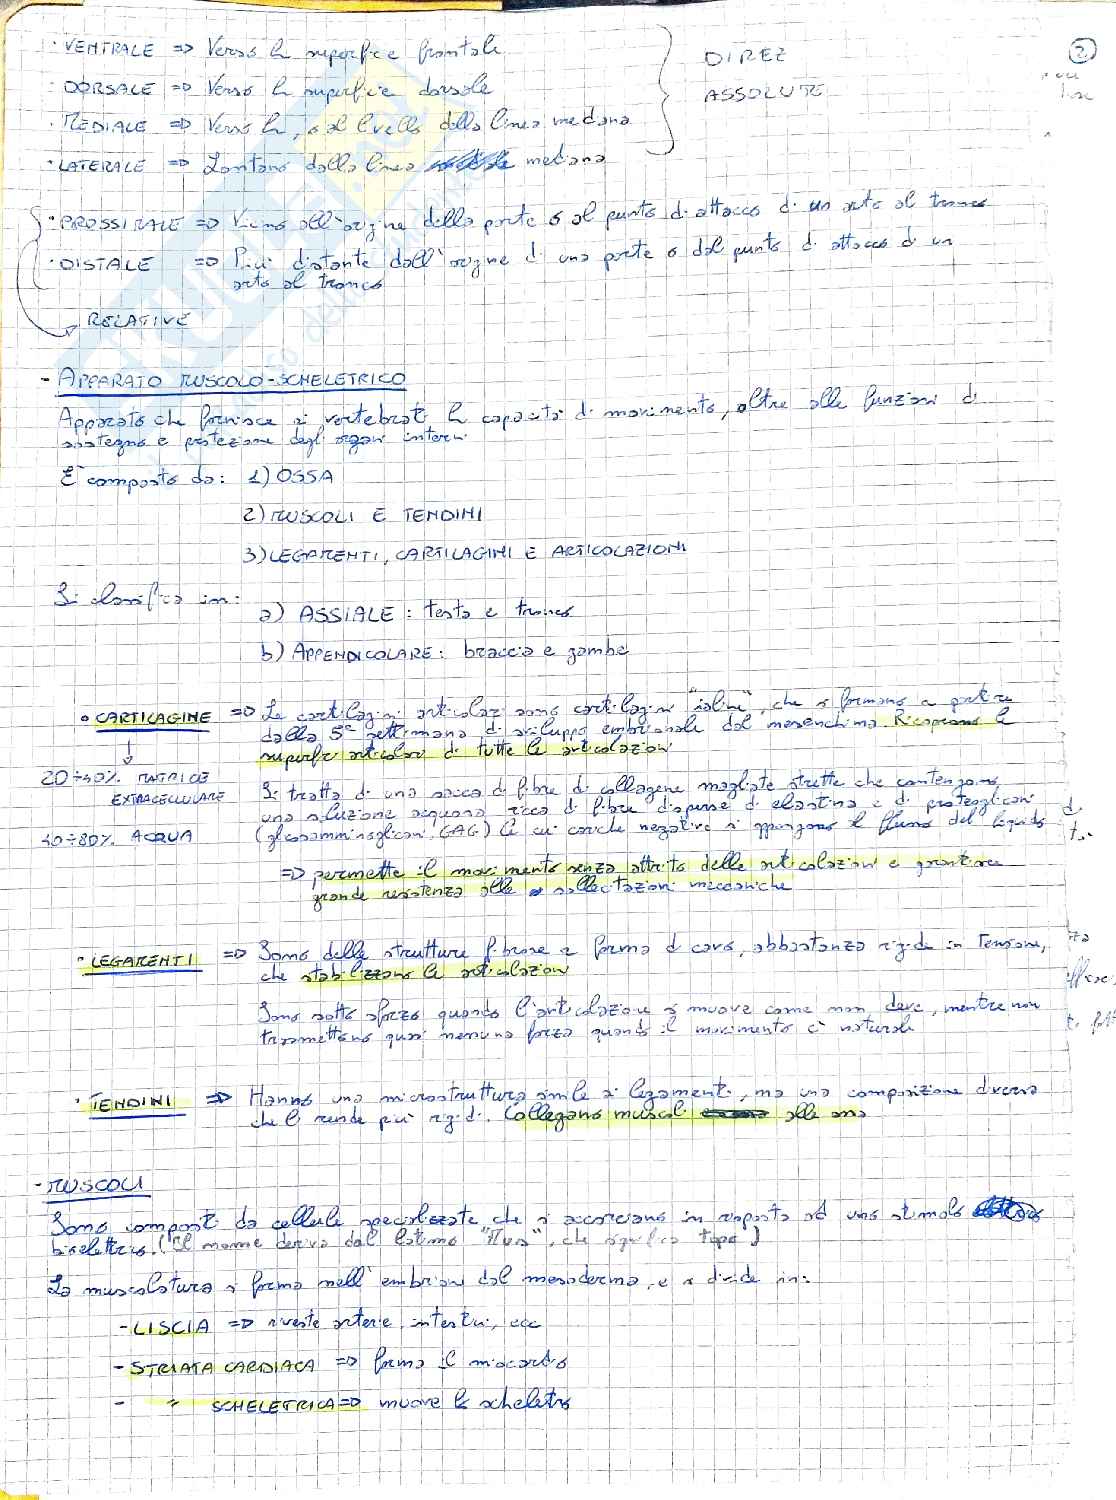 2
· VENTRALE => Verso la superficie frontale
DIREZ
· DORSALE => Verso la superficie dorsale
ASSOLUTE
· MEDIALE => Verso la, o al livello della linea mediana
· LATERALE => Lontano dalla linea mediana
· PROSSIMALE => Vicino all'origine della parte o al punto di attacco di un arto al tronco
· DISTALE => Più distante dall'origine di una parte o dal punto di attacco di un
arto al tronco
RELATIVE
- APPARATO MUSCOLO-SCHELETRICO
Apparato che fornisce ai vertebrati la capacità di movimento, oltre alle funzioni di
sostegno e protezione degli organi interni
E' composto da: 1) OSSA
2) MUSCOLI E TENDINI
3) LEGAMENTI, CARTILAGINI E ARTICOLAZIONI
Si classifica in:
a) ASSIALE : testa e tronco
b) APPENDICOLARE: braccia e gambe
· CARTILAGINE => Le cartilagini articolari sono cartilagini "ialine", che si formano a partire
dalla 5ª settimana di sviluppo embrionale dal mesenchima. Ricoprono le
superfici articolari di tutte le articolazioni
20÷40% MATRICE
EXTRACELLULARE
Si tratta di una sacca di fibre di collagene magliate strette che contengono
una soluzione acquosa ricca di fibre disperse di elastina e di proteoglicani
÷80% ACQUA
(glicosamminoglicani, GAG) le cui cariche negative si oppongono al flusso del liquido
=> permette il movimento senza attrito delle articolazioni e garantisce
grande resistenza alle sollecitazioni meccaniche
· LEGAMENTI => Sono delle strutture fibrose a forma di cavo, abbastanza rigide in tensione,
che stabilizzano le articolazioni
Sono sotto sforzo quando l'articolazione si muove come non deve, mentre non
trasmettono quasi nessuna forza quando il movimento è naturale
· TENDINI => Hanno una microstruttura simile ai legamenti, ma una composizione diversa
che li rende più rigidi. Collegano muscoli alle ossa
- MUSCOLI
Sono composti da cellule specializzate, che si accorciano in risposta ad uno stimolo
bioelettrico. (Il nome deriva dal latino "Mus", che significa topo)
La muscolatura si forma nell'embrione dal mesoderma, e si divide in:
- LISCIA => riveste arterie, intestini, ecc
- STRIATA CARDIACA => forma il miocardio
- " SCHELETRICA => muove lo scheletro